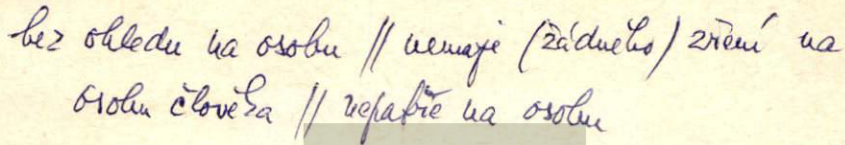 bez ohledu na osobu // nemaje (žádného) zření na
osobu člověka // nepatře na osobu